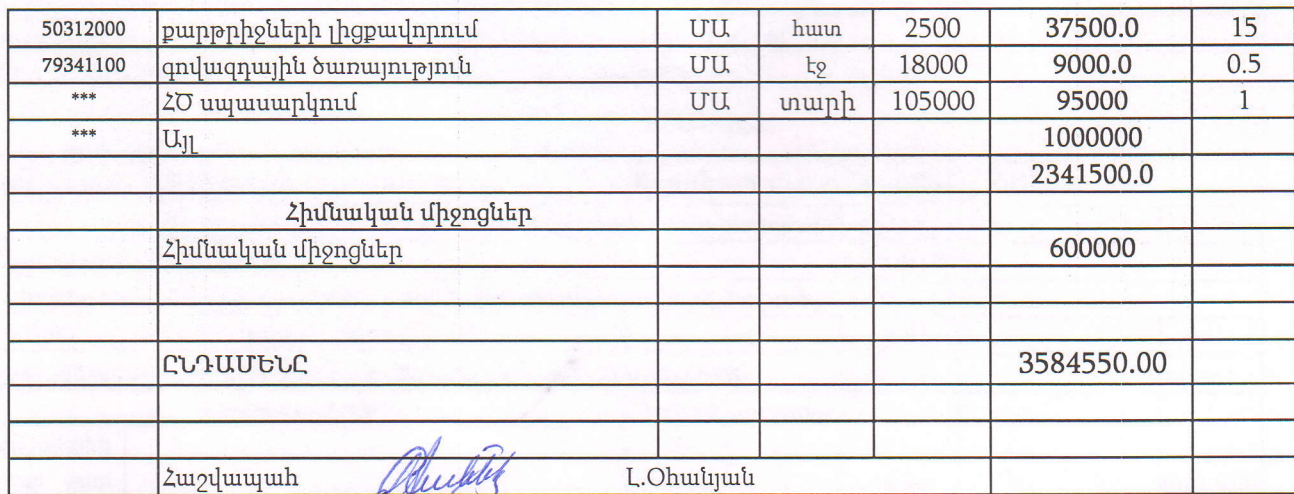 50312000 քարթրիջների լիցքավորում ՄԱ հատ 2500 37500.0 15
79341100 գովազդային ծառայություն ՄԱ էջ 18000 9000.0 0.5
*** ՀԾ սպասարկում ՄԱ տարի 105000 95000 1
*** Այլ 1000000
2341500.0
Հիմնական միջոցներ
Հիմնական միջոցներ 600000
ԸՆԴԱՄԵՆԸ 3584550.00
Հաշվապահ Լ.Օհանյան